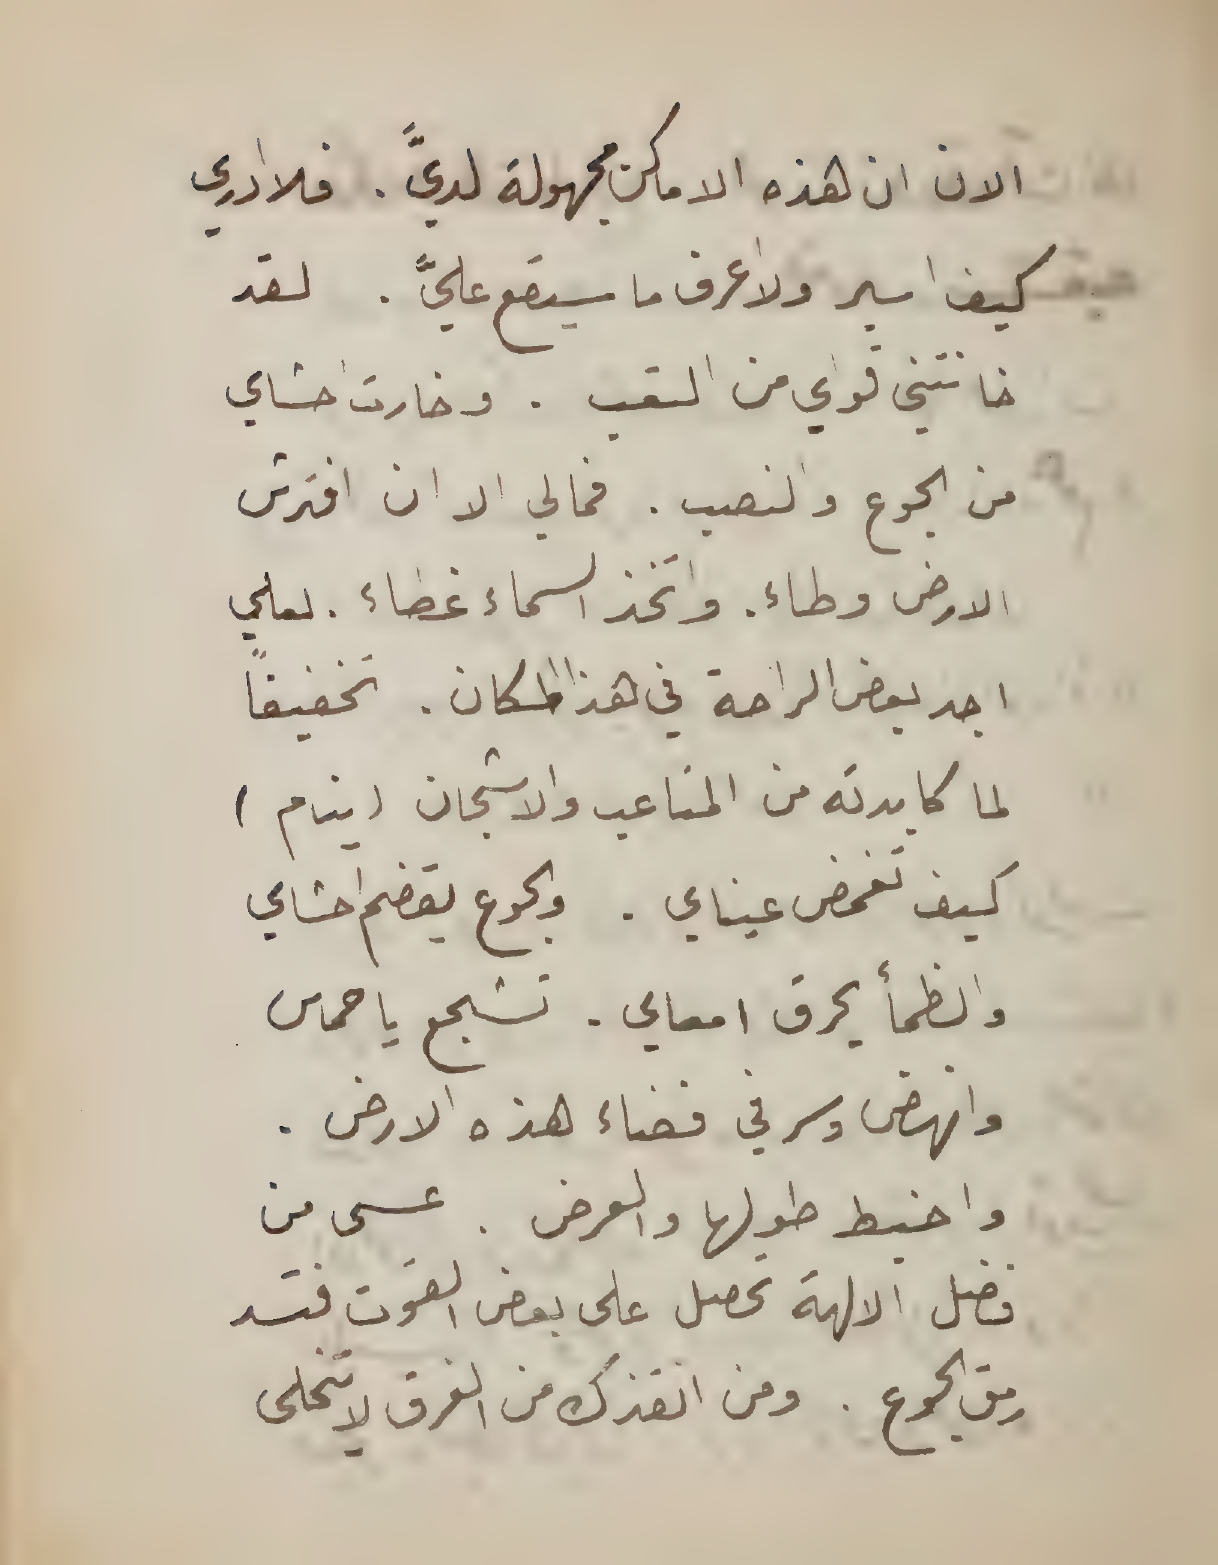 الان ان هذه الاماكن مجهولة لديَّ . فلا ادري
كيف اسير ولا اعرف ما سيقع عليَّ . لقد
خانتني قواي من التعب . وخارت احشاي
من الجوع والنصب . فمالي الا ان افترش
الارض وطاء . واتخذ السماء غطاء . لعلي
اجد بعض الراحة في هذا المكان . تخفيفاً
لما كابدته من المتاعب والاشجان (ينام)
كيف تغمض عيناي . والجوع يقضم احشاي
والظمأ يحرق امعاي . تشجع يا حماس
وانهض وسر في فضاء هذه الارض .
واخبط طولها والعرض . عسى من
فضل الالهة تحصل على بعض القوت فتسد
رمق الجوع . ومن انقذك من الغرق لا يتخلى